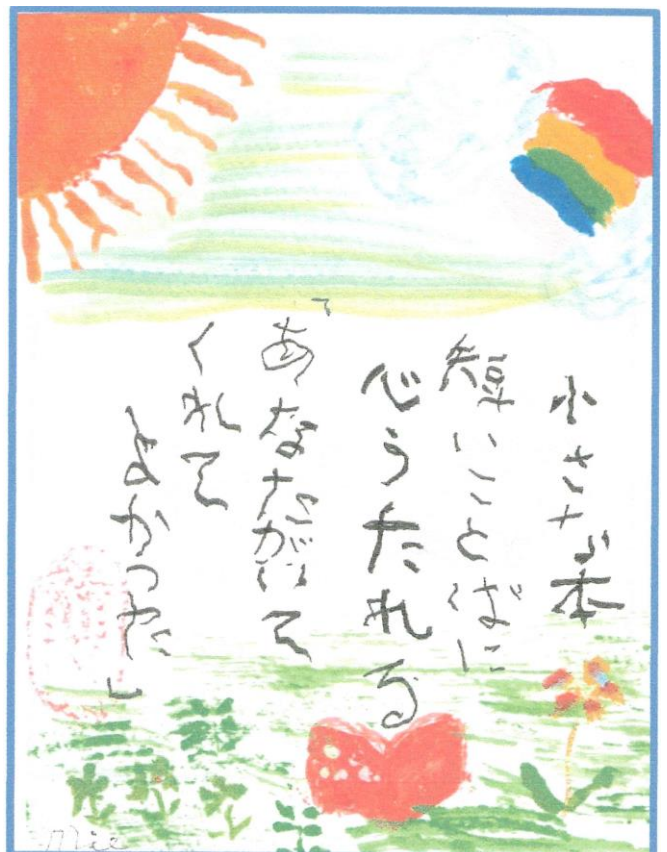 小さな本
短いことばに
心うたれる
「あなたがいて
くれて
よかった」
Mie